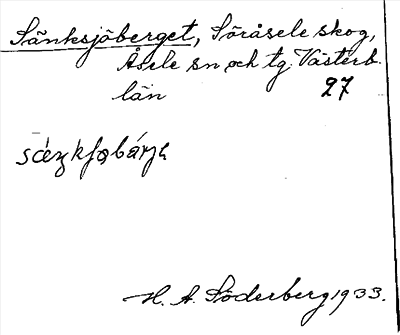 Sänksjöberget, Söråsele skog,
Åsele sn och tg. Västerb.
län 27
H. A. Söderberg 1933.